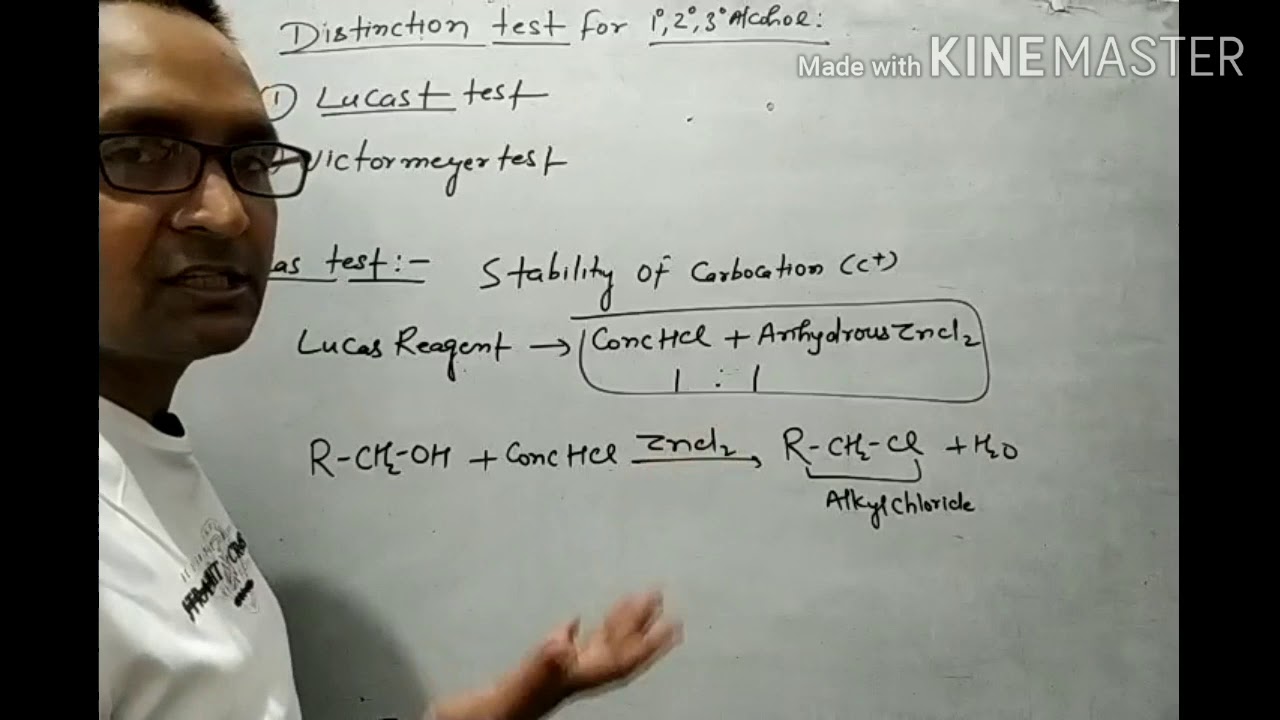 Distinction test for 1°, 2°, 3° Alcohol:
Made with KINEMASTER
① Lucast test
Victormeyer test
as test:- Stability of Carbocation (C+)
Lucas Reagent → Conc HCl + Anhydrous Zncl2
1 : 1
R-CH2-OH + Conc HCl Zncl2 → R-CH2-Cl + H2O
Alkyl Chloride